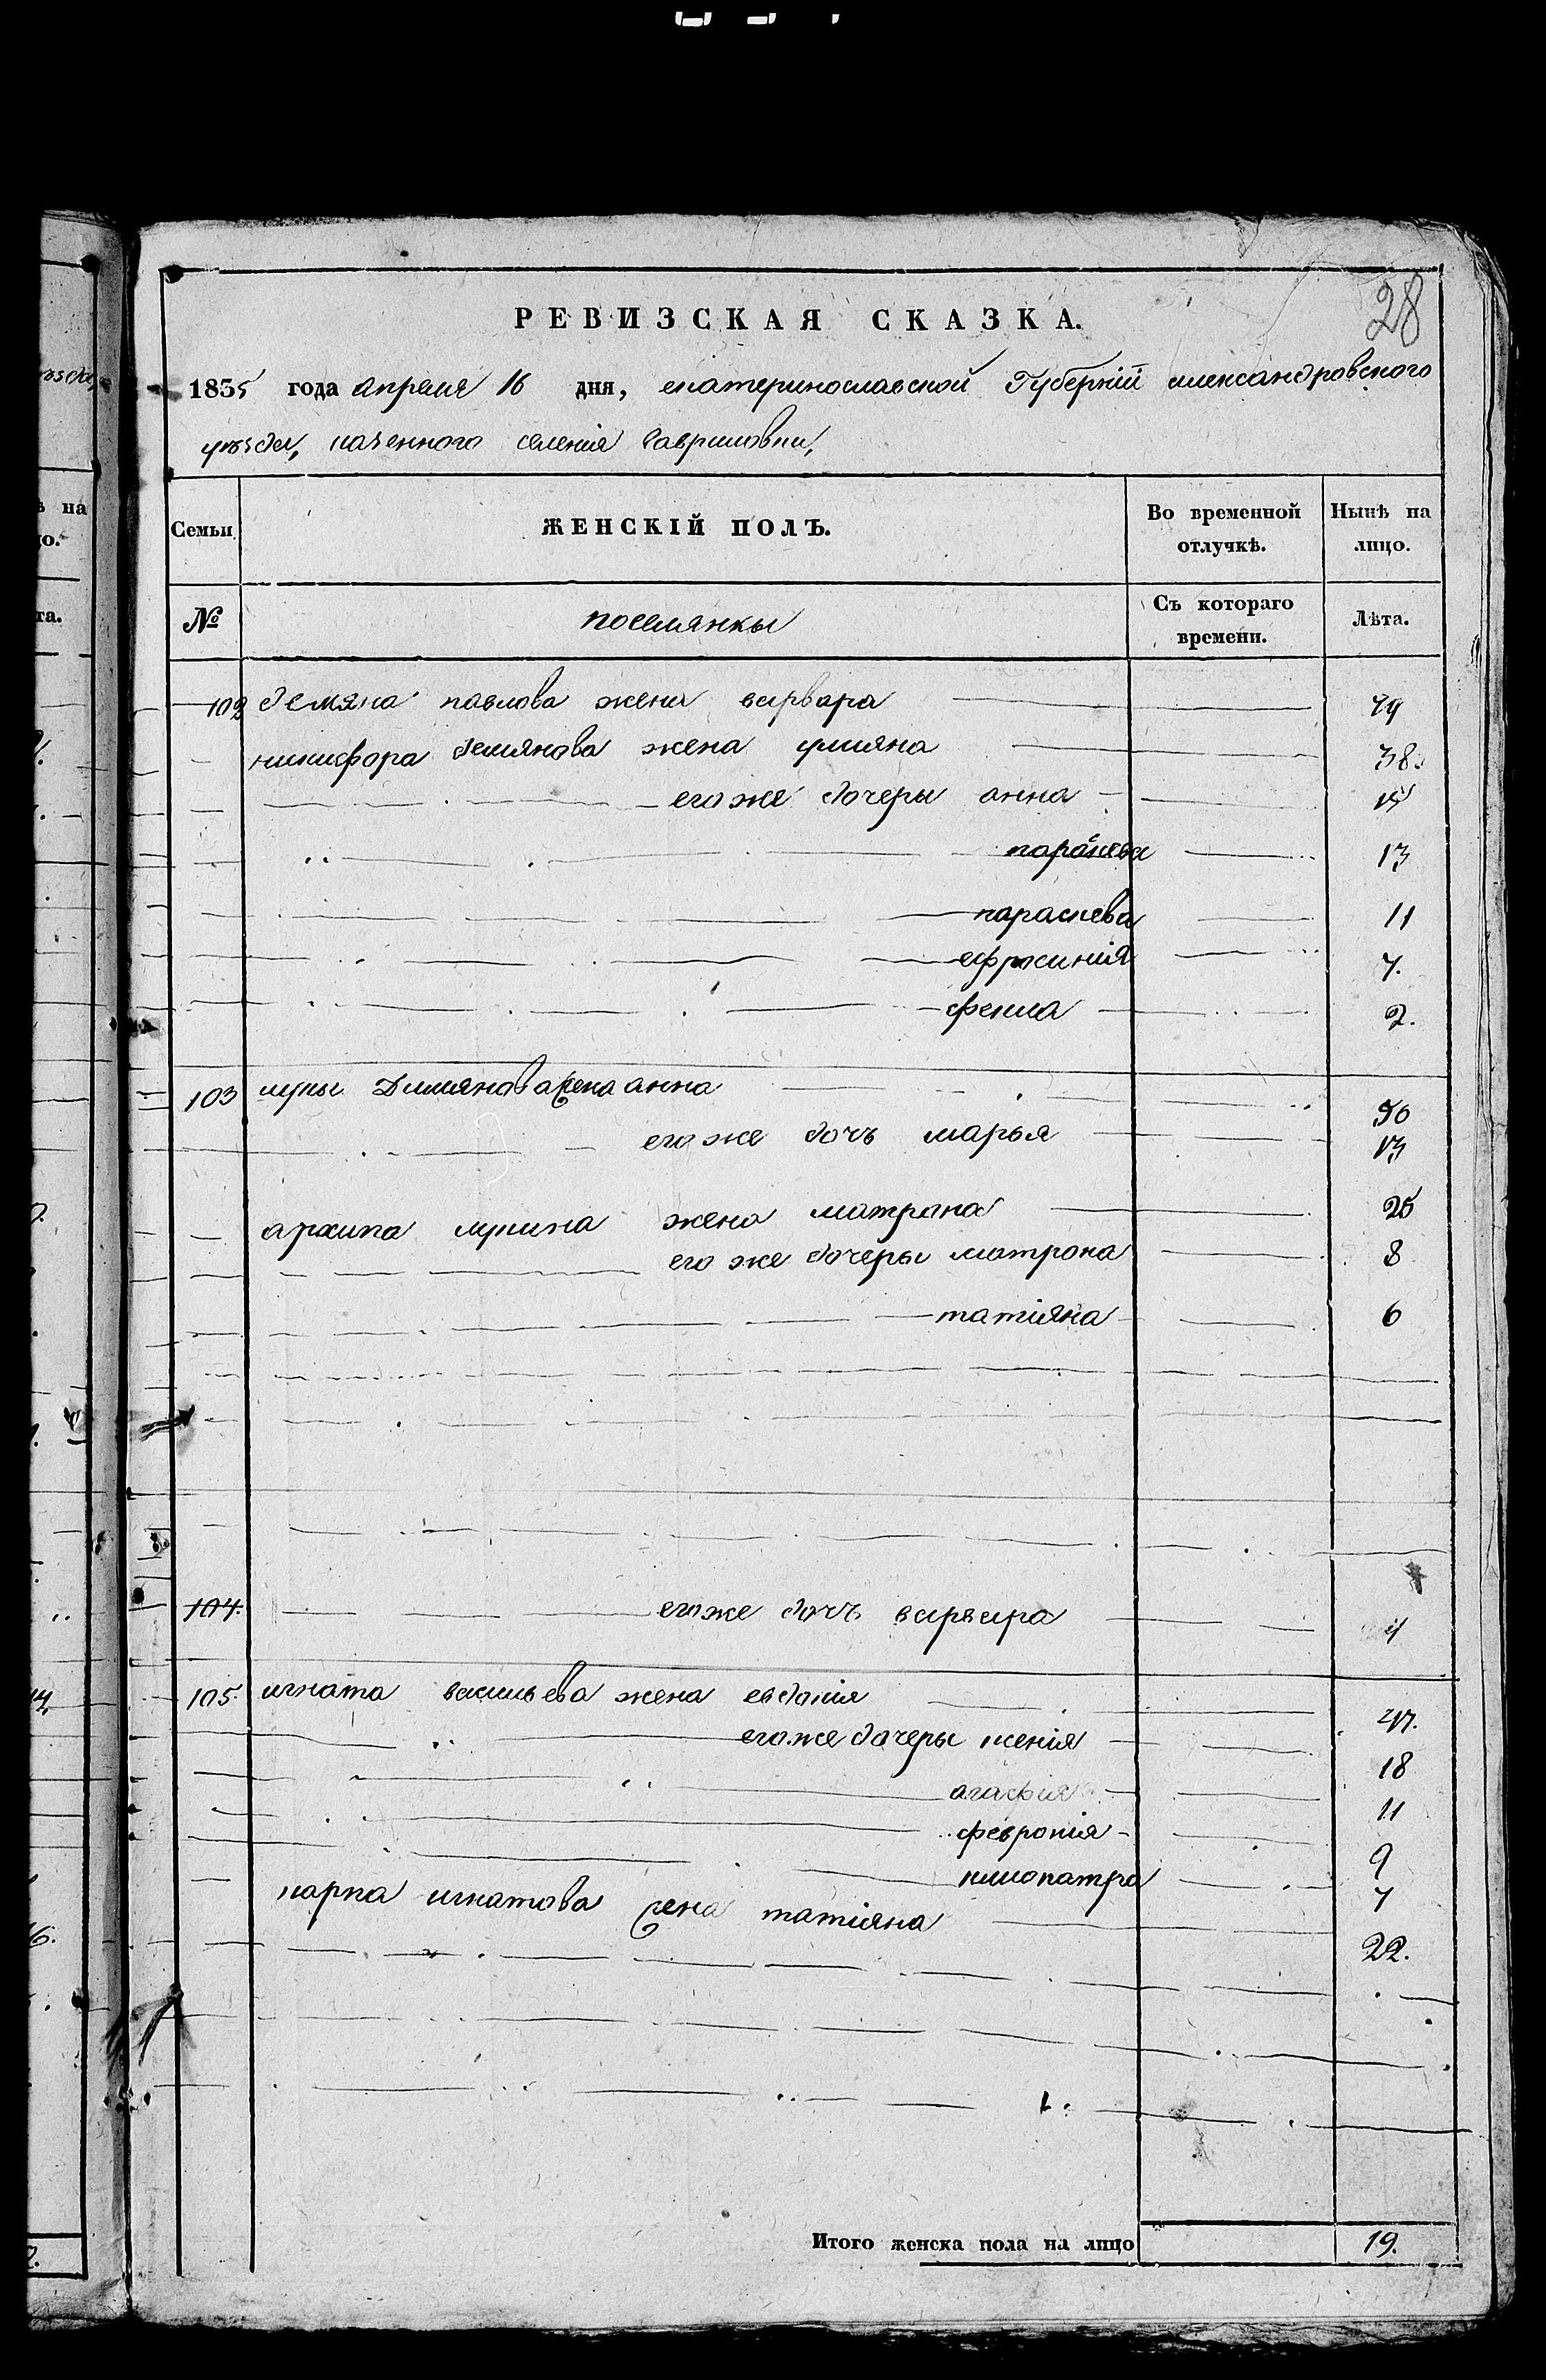 28
РЕВИЗСКАЯ СКАЗКА.
1835 года апреля 16 дня, екатеринославской Губернїй александровского
уѣзда, казенного селенія Гавриловки,
Семьи ЖЕНСКІЙ ПОЛЪ. Во временной отлучкѣ. Нынѣ на лицо.
№ поселянкы Съ котораго времени. Лѣта.
102 демяна павлова жена варвара 79
никифора демянова жена улияна 38.
егоже дочеры анна 15
параскева 13
параскева 11
ефросинія 7.
фекла 2.
103 лукы Димянова жена анна 50
егоже дочь марья 13
архипа лукина жена матрона 25
его же дочеры матрона 8
татіяна 6
104. егоже дочь варвара 4
105. игната васильева жена евдокія 47.
егоже дочеры ксенія 18
агафія 11
февронія 9
клиопатра 7
карпа игнатова жена татіяна 22.
Итого женска пола на лицо 19.